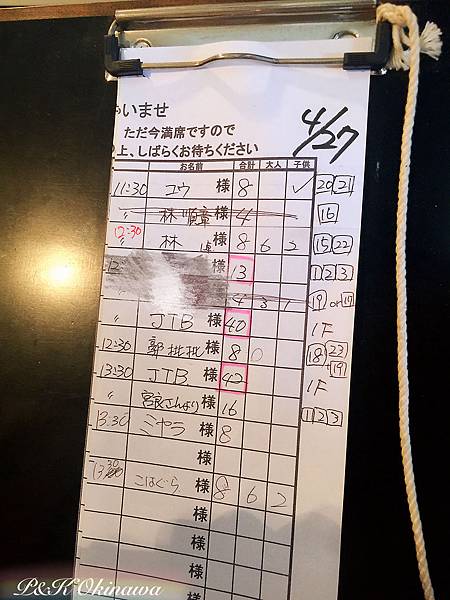 いませ
ただ今満席ですので
上、しばらくお待ちください
4/27
お名前 合計 大人 子供
11:30 ユウ 様 8 ✓ 20 21
〃 林 様 4 16
12:30 林 様 8 6 2 15 22
12 様 13 1 2 3
4 3 1 19 or
〃 JTB 様 40 1F
12:30 郭枇枇 様 8 0 18 23 19
13:30 JTB 様 42 1F
〃 宮良さんより 様 16 1 2 3
13.30 ミヤラ 様 8
様
13 30 こはぐら 様 8 6 2
様
様
様
様
P&K Okinawa